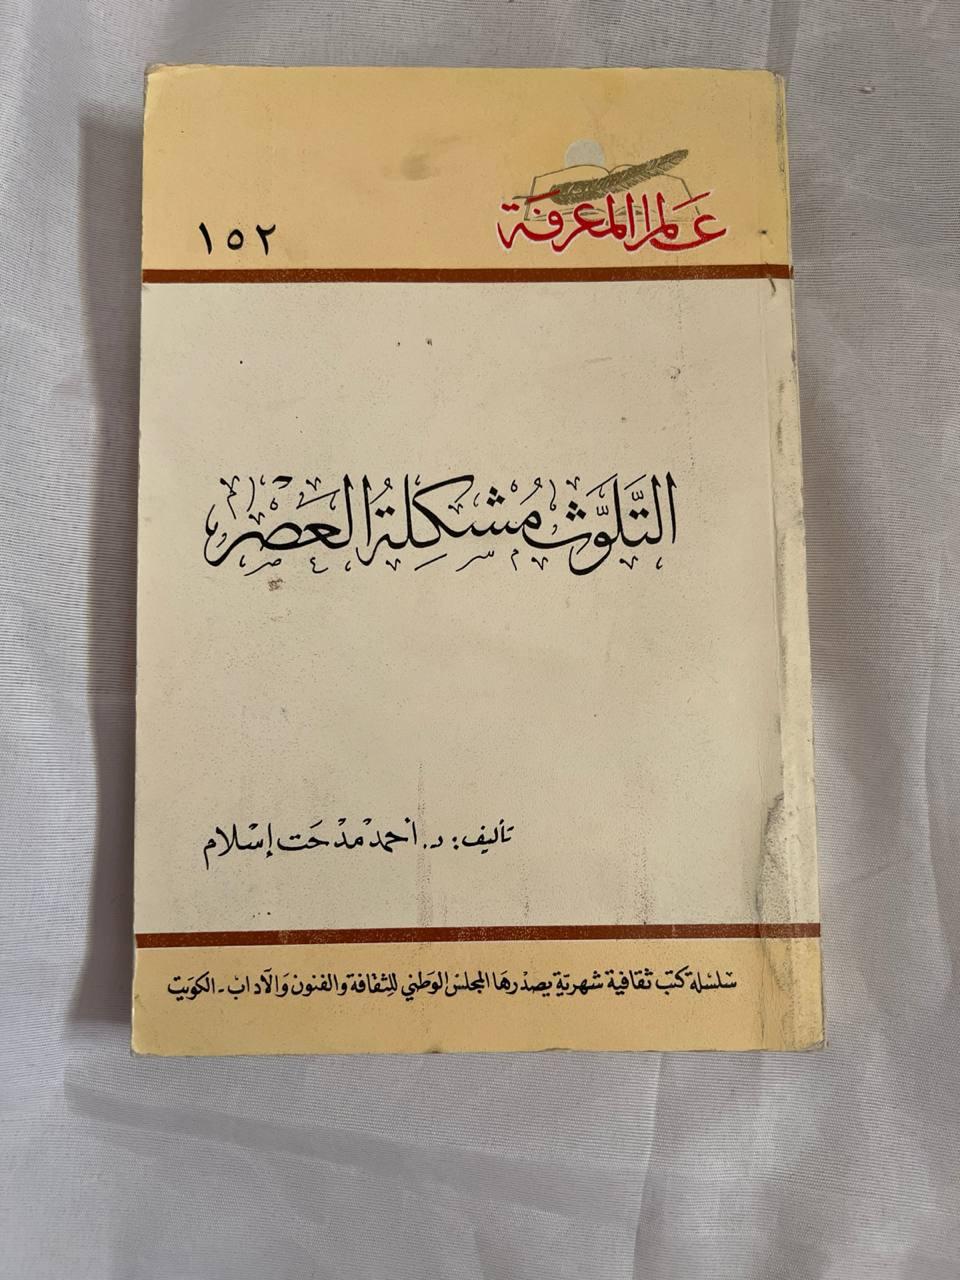 عالم المعرفة
١٥٢
التَّلَوّث مُشكِلة العَصْر
تأليف: د. أحمد مدحَت إسْلام
سلسلة كتب ثقافية شهريّة يصدرها المجلس الوطني للثقافة والفنون والآداب - الكويت